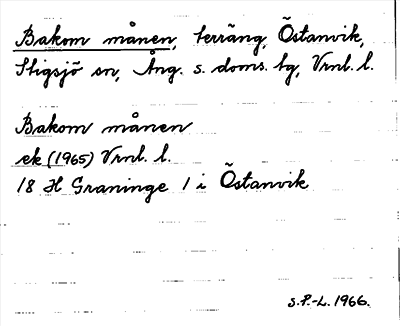 Bakom månen, terräng, Östanvik,
Stigsjö sn, Ång. s. doms. tg, Vrnl. l.
Bakom månen
ek (1965) Vrnl. l.
18 H Graninge 1 i Östanvik
S.P.-L. 1966.